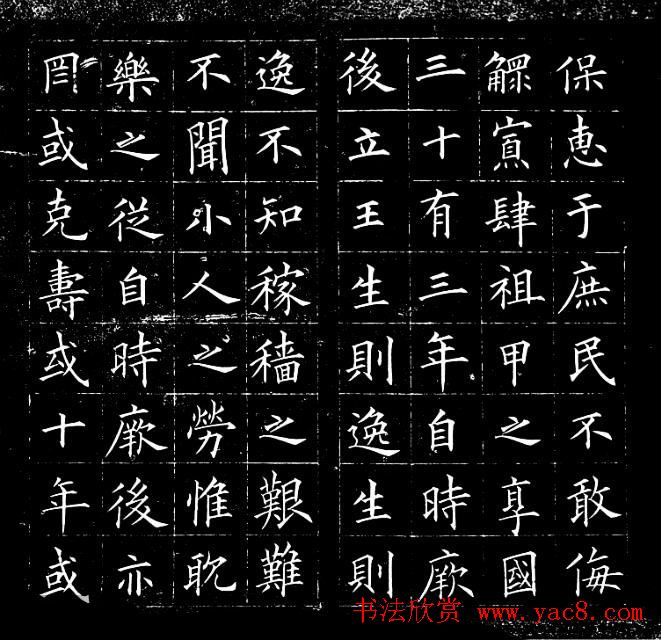 保惠于庶民不敢侮
鰥寡肆祖甲之享國
三十有三年自時厥
後立王生則逸生則
逸不知稼穡之艱難
不聞小人之勞惟耽
樂之從自時厥後亦
罔或克壽或十年或
书法欣赏 www.yac8.com